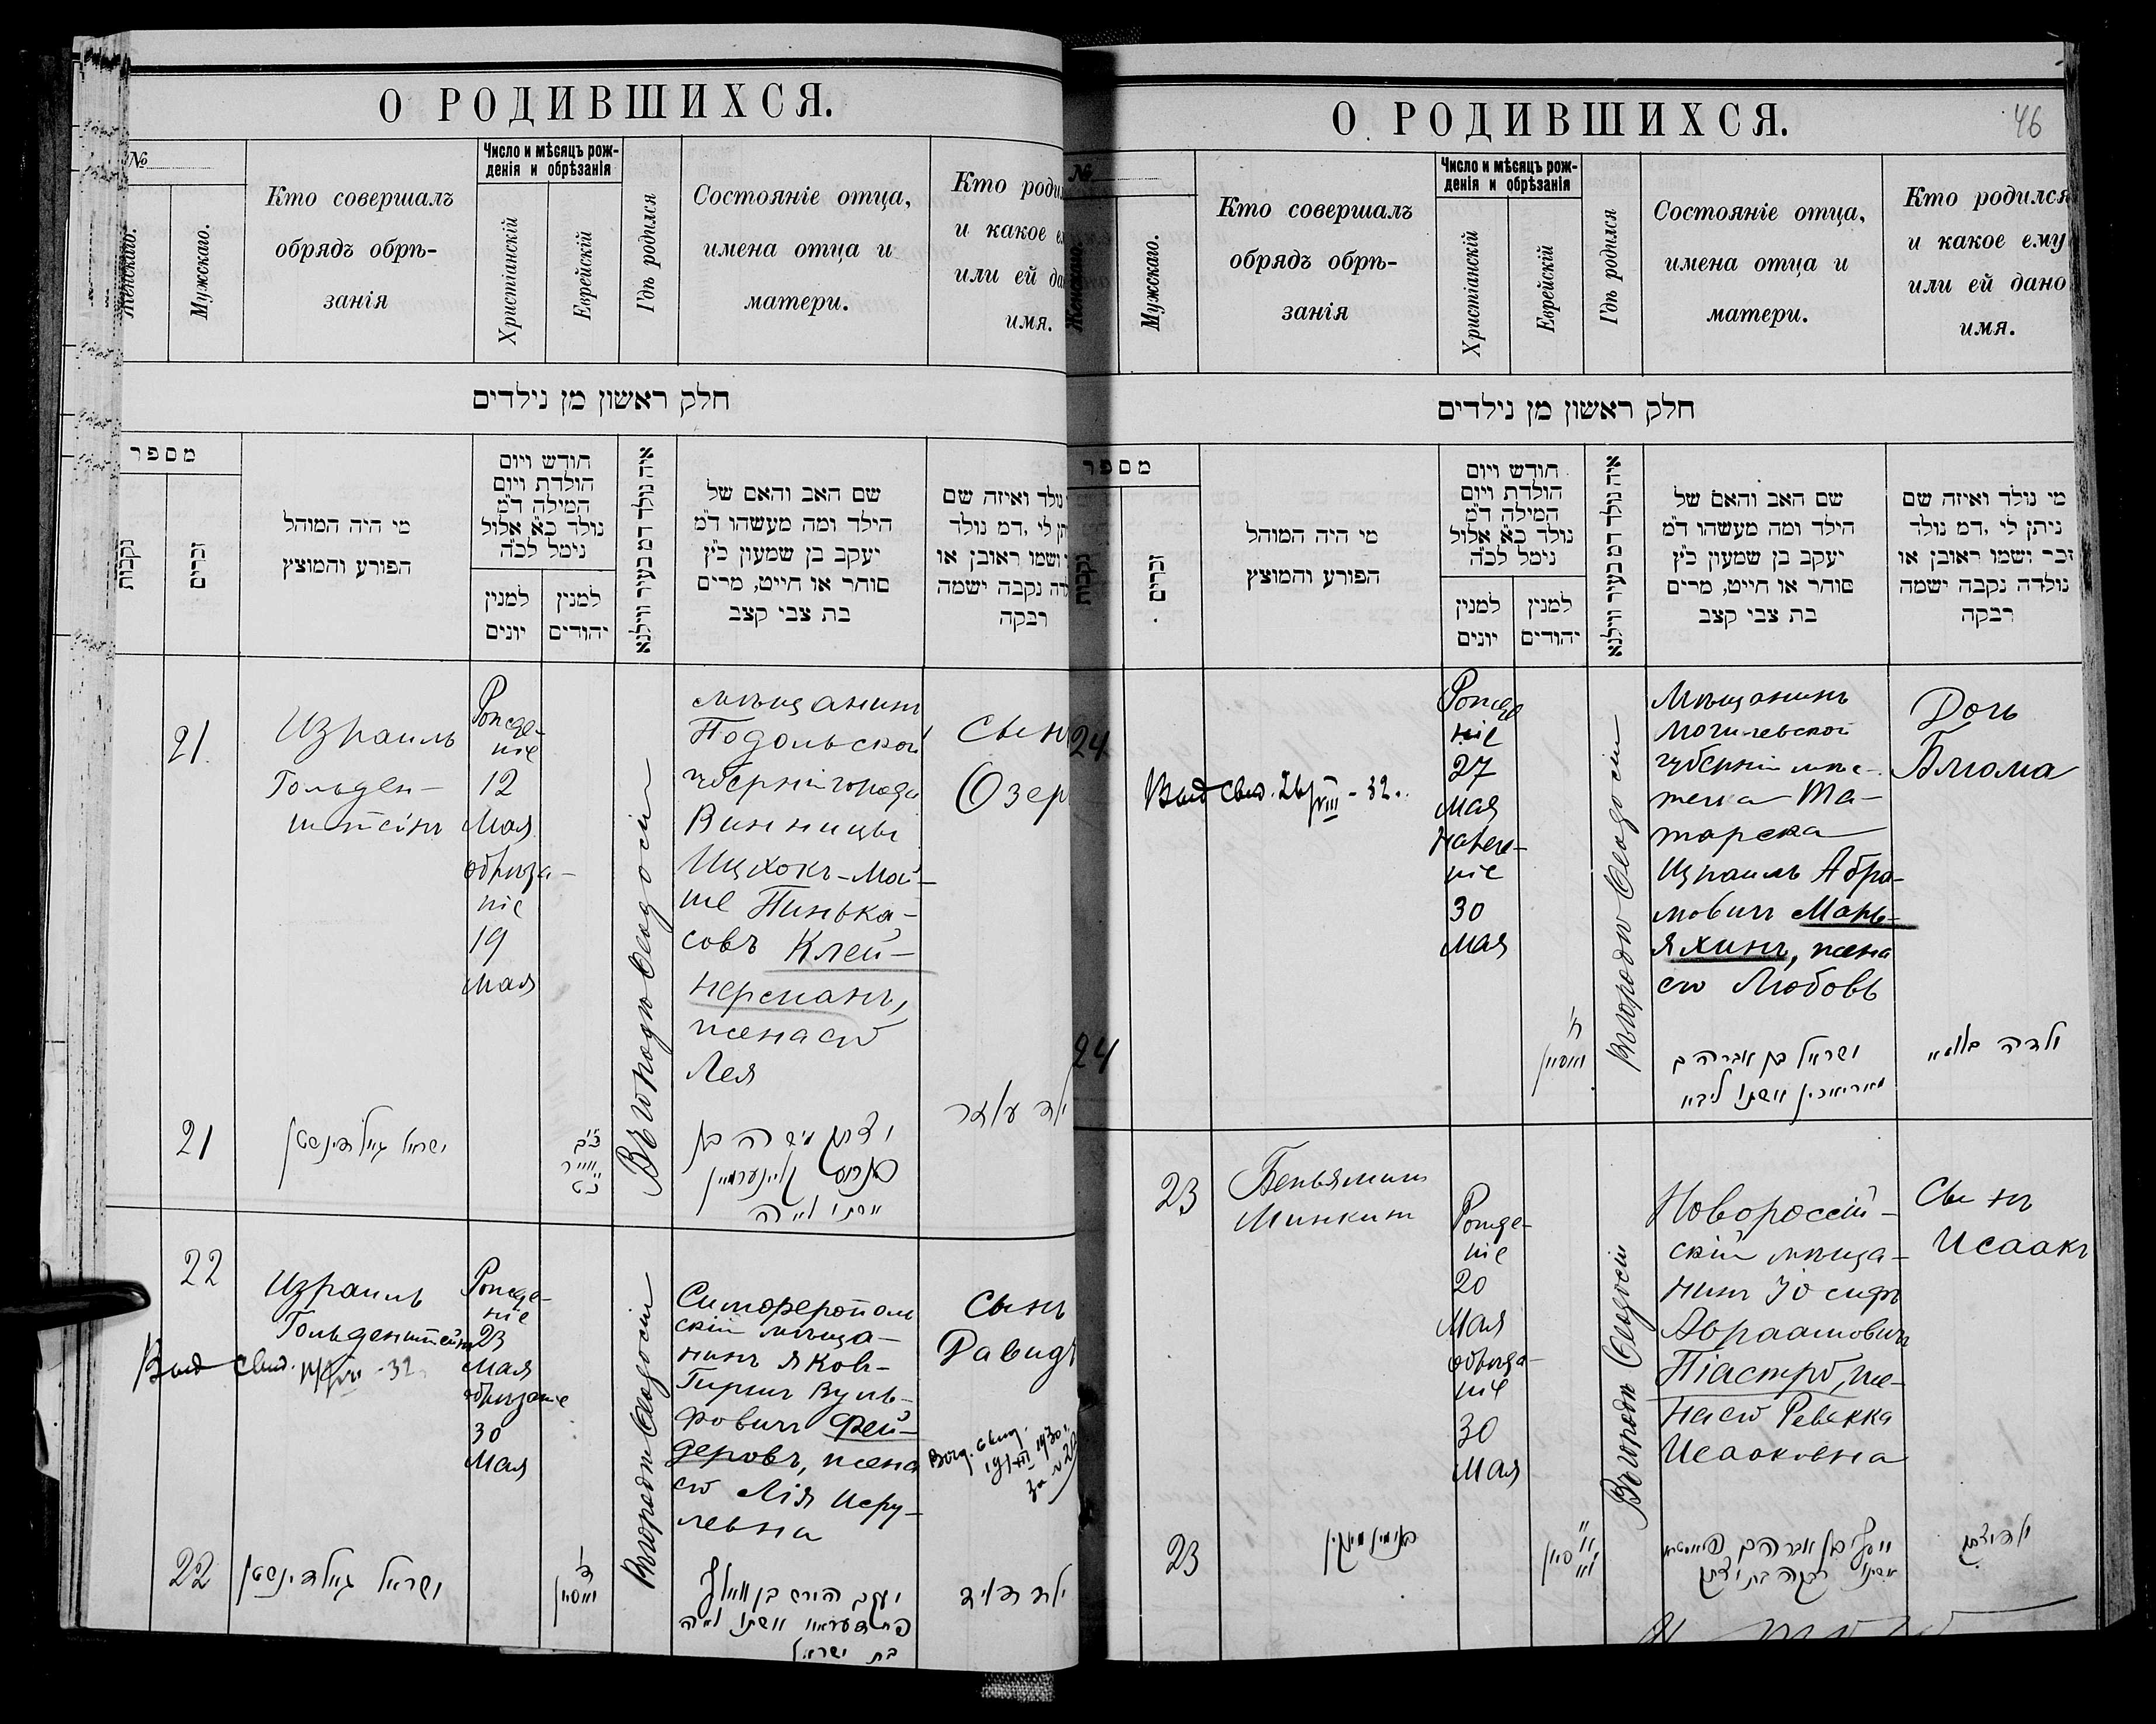 О РОДИВШИХСЯ.
№
Женскаго.
Мужскаго.
Кто совершалъ
обрядъ обрѣ-
занія
Число и мѣсяцъ рож-
денія и обрѣзанія
Христіанскій
Еврейскій
Гдѣ родился
Состояніе отца,
имена отца и
матери.
Кто роди
и какое е
или ей да
имя.
חלק ראשון מן נילדים
מספר
נקבות
זכרים
מי היה המוהל
הפורע והמוצץ
חודש ויום
הולדת ויום
המילה ד״מ
נולד כ״א אלול
נימל לכ״ה
למנין
יונים
למנין
יהודים
איה נולד דמ בעיר ווילנא
שם האב והאם של
הילד ומה מעשהו ד״מ
יעקב בן שמעון כ״ץ
סוחר או חייט, מרים
בת צבי קצב
נולד ואיזה שם
תן לי ,דמ נולד
ושמו ראובן או
דה נקבה ישמה
רבקה
21
Израиль
Гольден-
штейнъ
Рожде-
ніе
12
Мая
обрѣза-
ніе
19
Мая
Въ городѣ Ѳеодосіи
мѣщанинъ
Подольской
губерніи города
Винницы
Ицхокъ-Мой-
ше Пинька-
совъ Клей-
нерманъ,
жена его
Лея
Сынъ
Озер
21
ישראל גאלדינשטין
יצחק משה בן
פנחס קליינערמאן
אשתו לאה
ילד עזר
22
Израиль
Гольденштейнъ
Выд свид.
-32
Рожде-
ніе
23
Мая
обрѣзаніе
30
Мая
Въ городѣ Ѳеодосіи
Симферополь
скій мѣща-
нинъ Яковъ-
Гиршъ Вуль-
фовичъ Фей-
деровъ, жена
его Лія Исру-
левна
Сынъ
Давидъ
Выд. свид.
19/XII 1930 г.
за №
22
ישראל גאלדינשטין
יעקב הירש בן וואלף
אשתו לאה
בת ישראל
ילד דויד
О РОДИВШИХСЯ.
46
№
Женскаго.
Мужскаго.
Кто совершалъ
обрядъ обрѣ-
занія
Число и мѣсяцъ рож-
денія и обрѣзанія
Христіанскій
Еврейскій
Гдѣ родился
Состояніе отца,
имена отца и
матери.
Кто родился
и какое ему
или ей дано
имя.
חלק ראשון מן נילדים
מספר
נקבות
זכרים
מי היה המוהל
הפורע והמוצץ
חודש ויום
הולדת ויום
המילה ד״מ
נולד כ״א אלול
נימל לכ״ה
למנין
יונים
למנין
יהודים
איה נולד דמ בעיר ווילנא
שם האב והאם של
הילד ומה מעשהו ד״מ
יעקב בן שמעון כ״ץ
סוחר או חייט, מרים
בת צבי קצב
מי נולד ואיזה שם
ניתן לי ,דמ נולד
זכר ושמו ראובן או
נולדה נקבה ישמה
רבקה
24
Выд свид. 26/VIII - 32.
Рожде
ніе
27
Мая
Нарече-
ніе
30
Мая
Въ городѣ Ѳеодосіи
Мѣщанинъ
Могилевской
губерніи мѣс-
течка Та-
тарска
Израиль Абра-
мовичъ Марь-
яхинъ, жена
его Любовь
Дочь
Блюма
24
ח׳
סיון
ישראל בן אברהם
מאריאחין אשתו ליבא
ילדה בלומא
23
Беньяминъ
Минкинъ
Рожде-
ніе
20
Мая
обрѣза-
ніе
30
Мая
Въ городѣ Ѳеодосіи
Новороссій-
скій мѣща-
нинъ Іосифъ
Авраамовичъ
Піастро, же-
на его Ревекка
Исааковна
Сынъ
Исаакъ
23
בנימין מינקין
יוסף בן אברהם פיאסטרא
אשתו רבקה בת יצחק
ילד יצחק